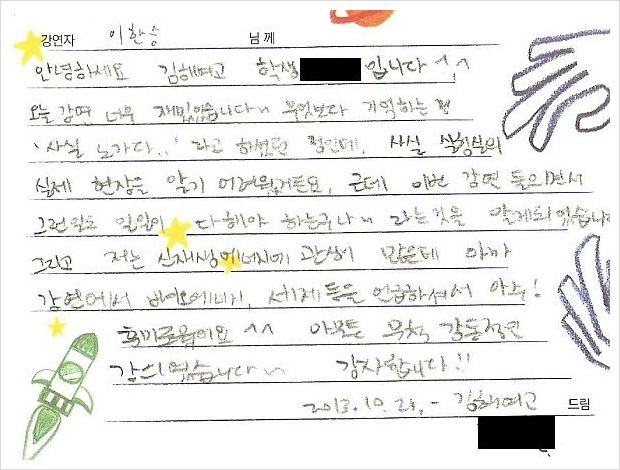 강연자 이환승 님께
안녕하세요 김해여고 학생 입니다 ^^
오늘 강연 너무 재미있습니다~ 무엇보다 기억하는 건
'사실 노가다..' 라고 하셨던 점인데, 사실 실험실의
실제 현장을 알기 어려웠거든요, 근데 이번 강연 들으면서
그런일도 일일이 다해야 하는구나~ 라는것을 알게되었습니다
그리고 저는 신재생에너지에 관심이 많은데 아까
강연에서 바이오에너지, 세제 등을 언급하셔서 아주!
흥미로웠어요 ^^ 아무튼 무척 감동적인
강의였습니다~ 감사합니다!!
2013.10.21.- 김해여고 드림